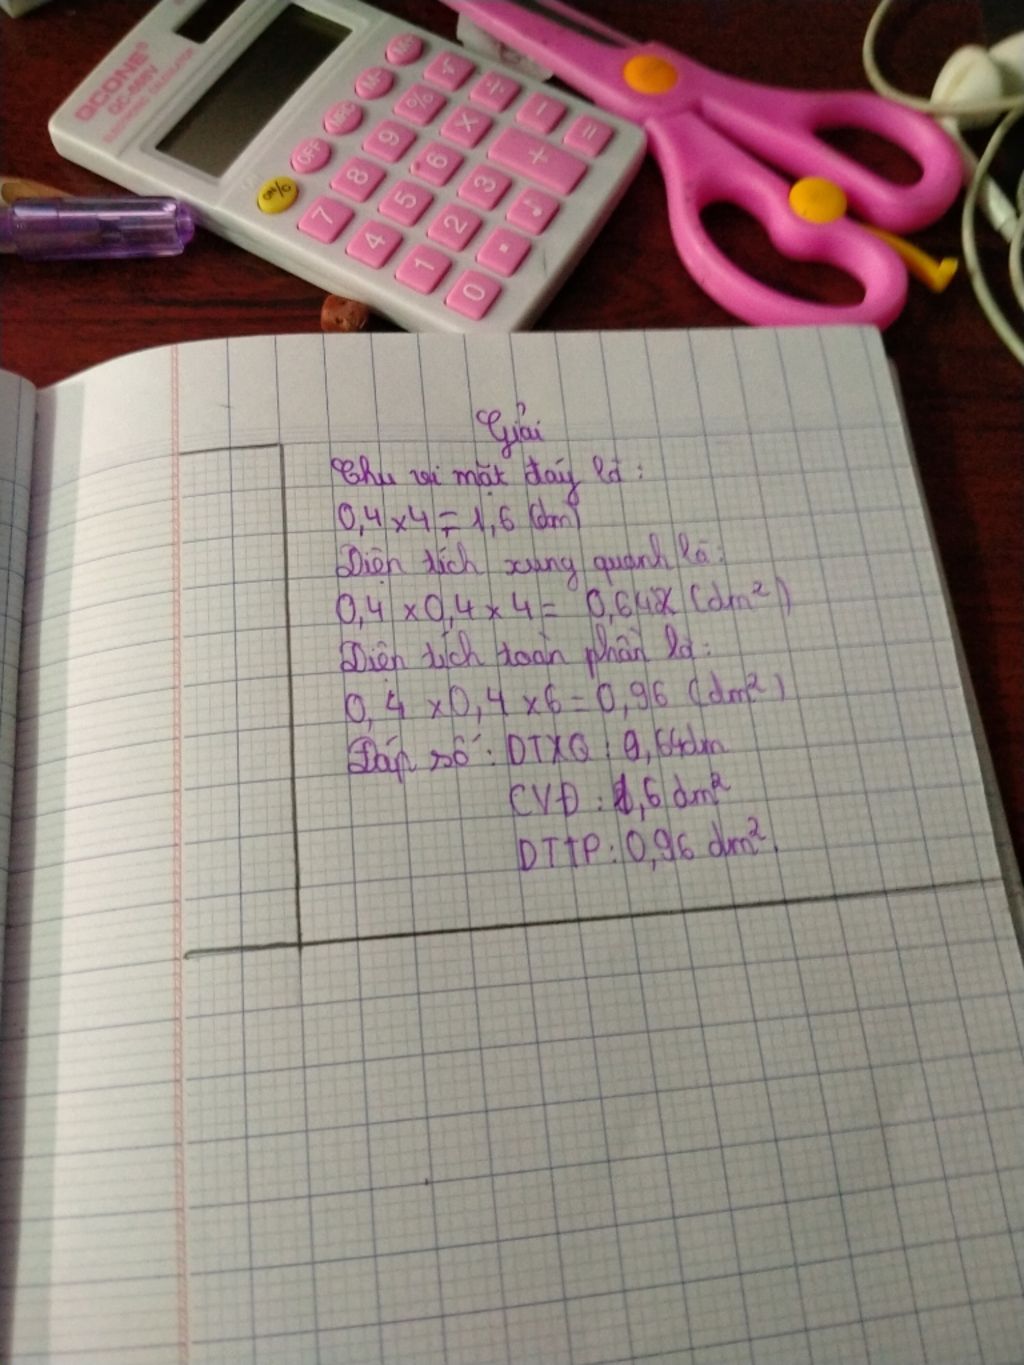 QCONE®
GC-808V
ELECTRONIC CALCULATOR
M- √ ÷ - =
M+ % × +
MRC 9 6 3
OFF 8 5 2 .
ON/C 7 4 1 0
Giải
Chu vi mặt đáy là:
0,4 x 4 = 1,6 (dm)
Diện tích xung quanh là:
0,4 x 0,4 x 4 = 0,64 (dm²)
Diện tích toàn phần là:
0,4 x 0,4 x 6 = 0,96 (dm²)
Đáp số: DTXQ: 0,64dm
CVĐ: 1,6 dm²
DTTP: 0,96 dm².